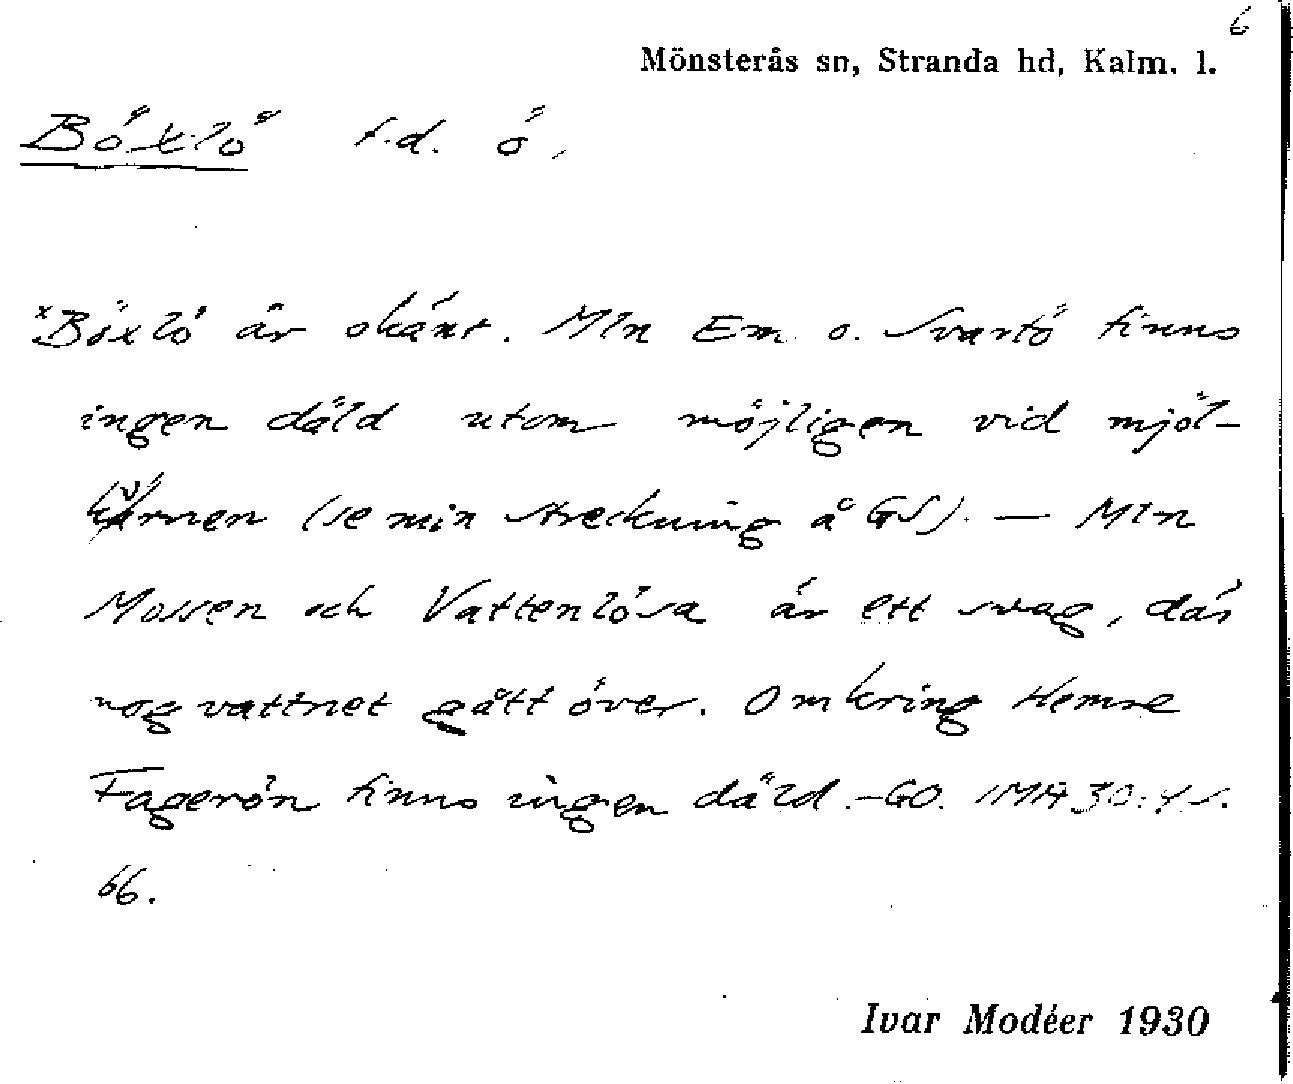 6
Mönsterås sn, Stranda hd, Kalm. l.
Böxlö f.d. ö.
"Böxlö är okänt. Mln Em o. Svartö finns
ingen däld utom möjligen vid mjöl-
kärnen (se min streckning å GS). — Mln
Mossen och Vattenlösa är ett svag, där
nog vattnet gått över. Omkring Hemre
Fagerön finns ingen däld. - GO. IMA 30:4 s.
66.
Ivar Modéer 1930